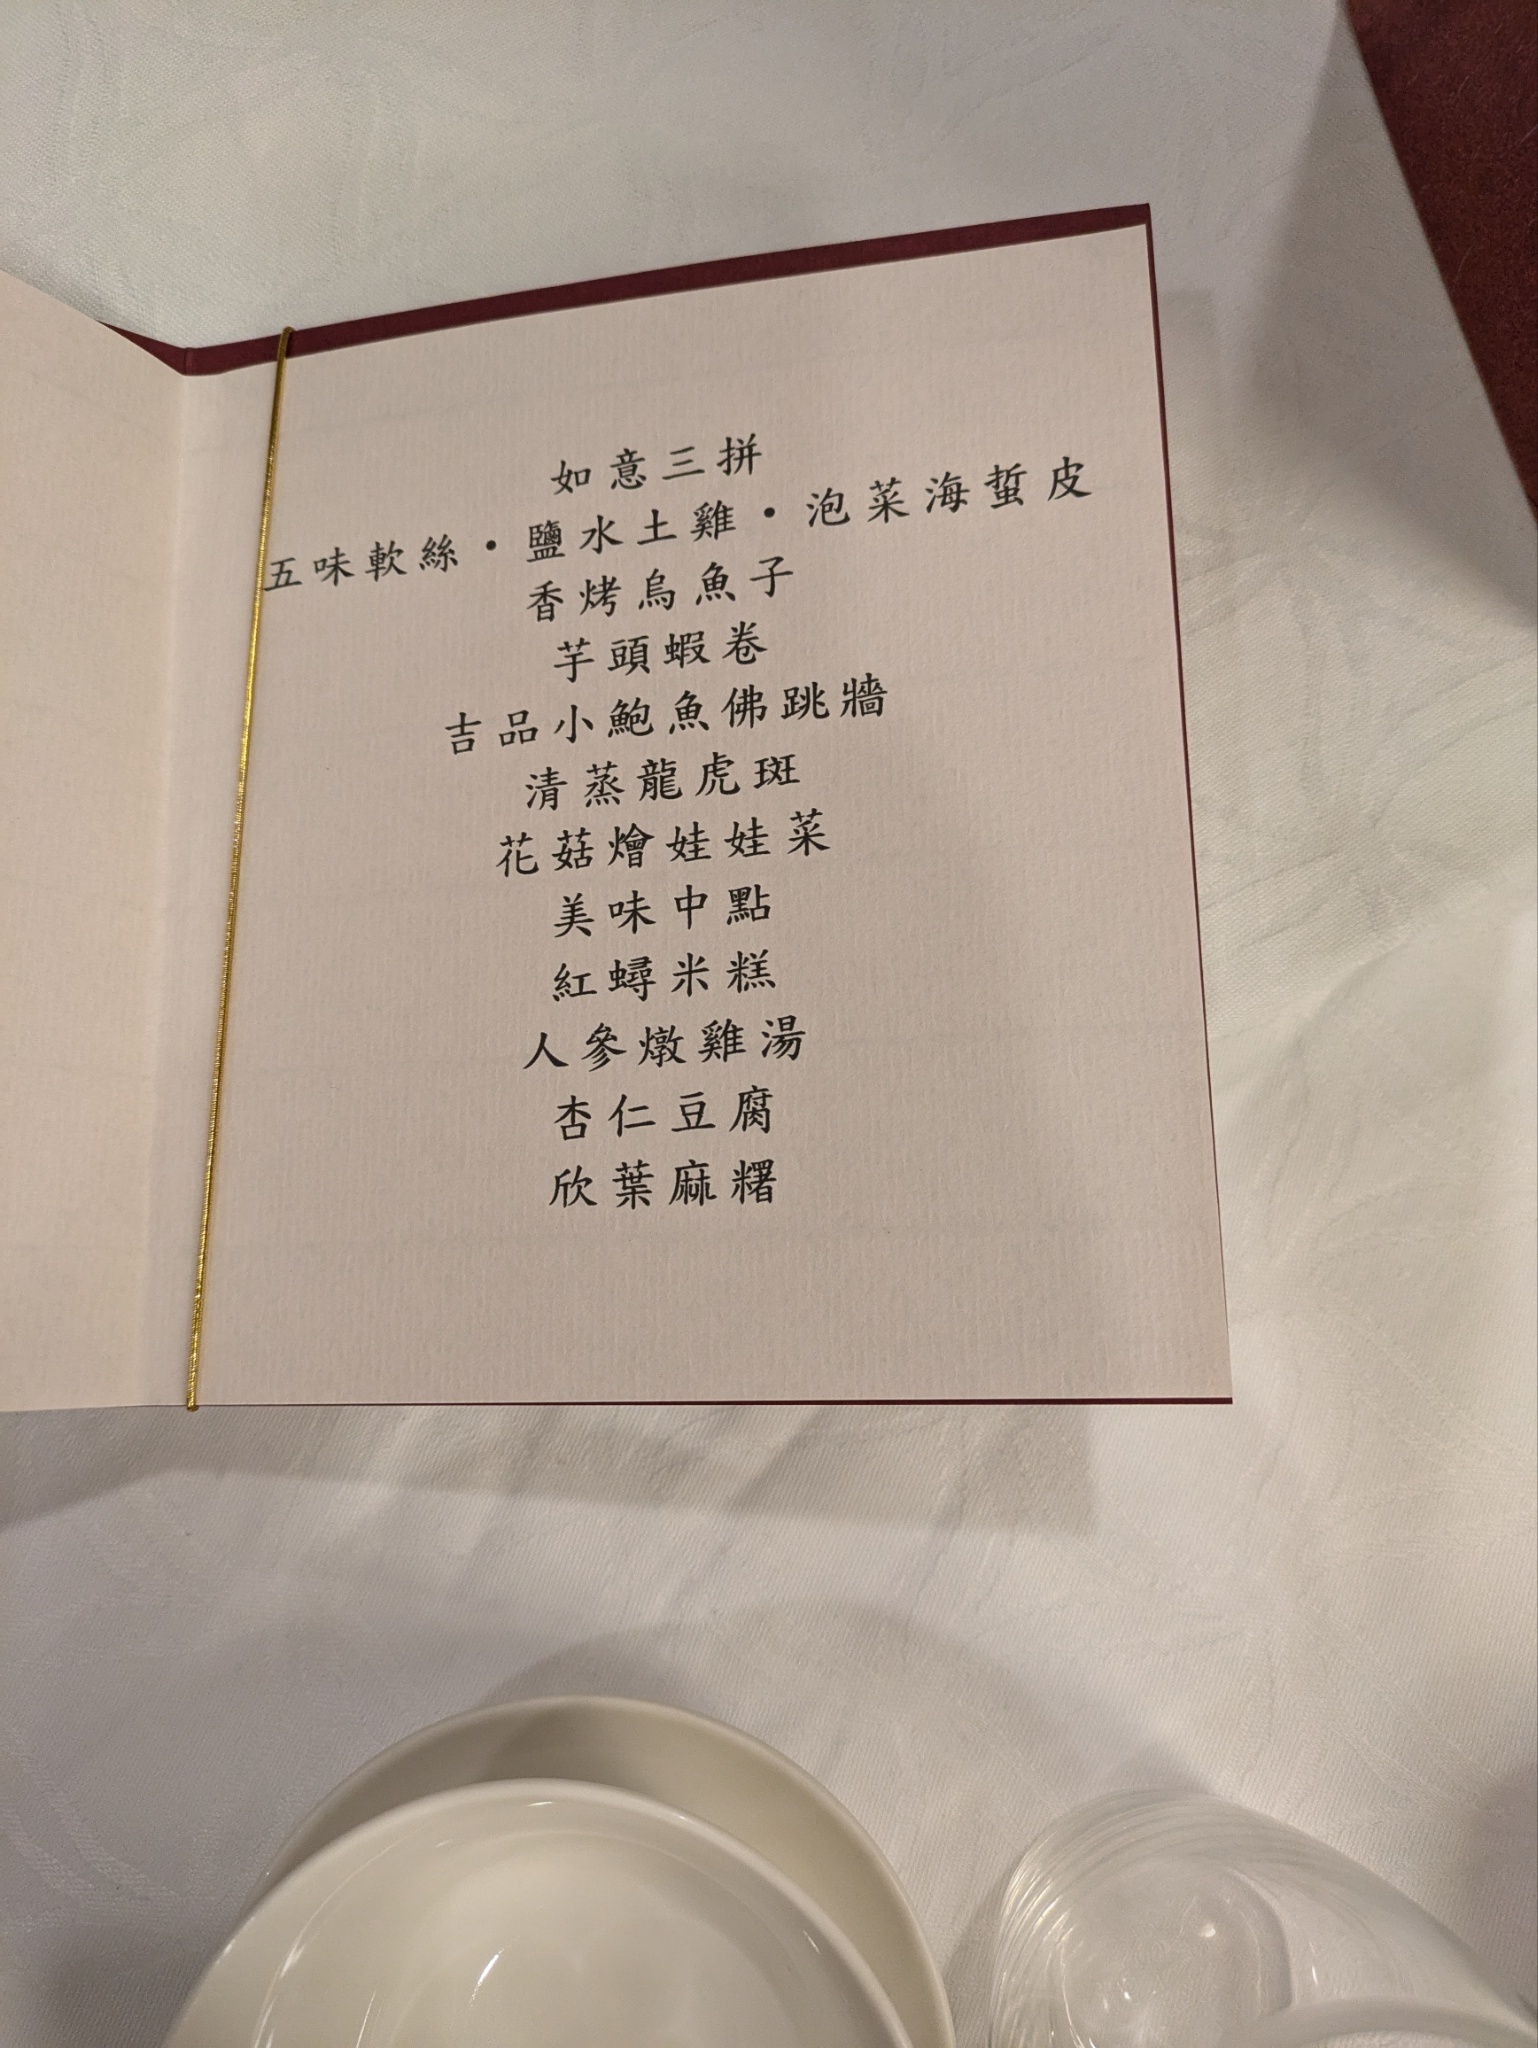 如意三拼
五味軟絲・鹽水土雞・泡菜海蜇皮
香烤烏魚子
芋頭蝦卷
吉品小鮑魚佛跳牆
清蒸龍虎斑
花菇燴娃娃菜
美味中點
紅蟳米糕
人參燉雞湯
杏仁豆腐
欣葉麻糬